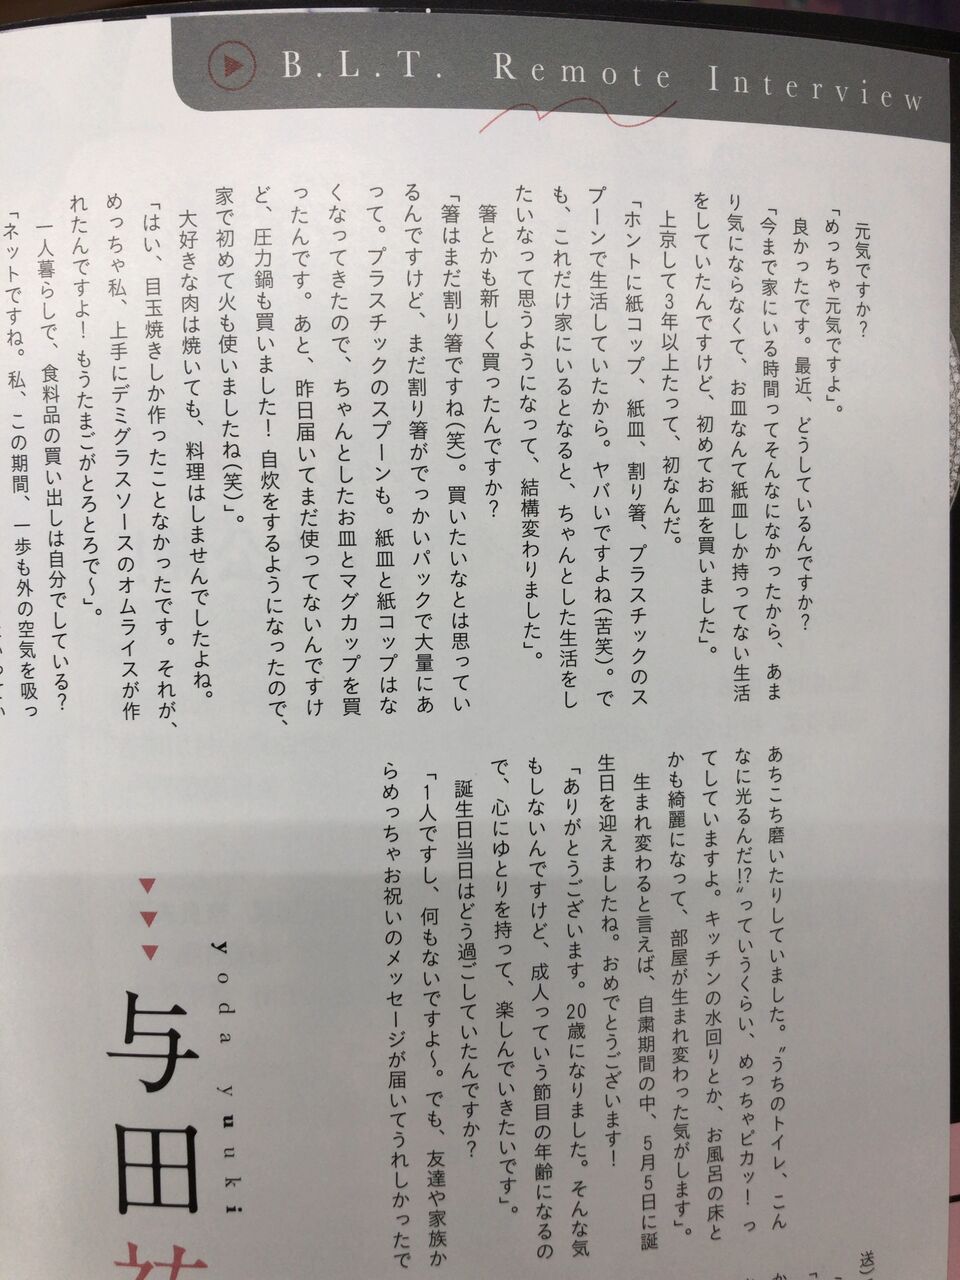 B.L.T. Remote Interview
元気ですか?
「めっちゃ元気ですよ」。
良かったです。最近、どうしているんですか?
「今まで家にいる時間ってそんなになかったから、あま
り気にならなくて、お皿なんて紙皿しか持ってない生活
をしていたんですけど、初めてお皿を買いました」。
上京して3年以上たって、初なんだ。
「ホントに紙コップ、紙皿、割り箸、プラスチックのス
プーンで生活していたから。ヤバいですよね(苦笑)。で
も、これだけ家にいるとなると、ちゃんとした生活をし
たいなって思うようになって、結構変わりました」。
箸とかも新しく買ったんですか?
「箸はまだ割り箸ですね(笑)。買いたいなとは思ってい
るんですけど、まだ割り箸がでっかいパックで大量にあ
って。プラスチックのスプーンも。紙皿と紙コップはな
くなってきたので、ちゃんとしたお皿とマグカップを買
ったんです。あと、昨日届いてまだ使ってないんですけ
ど、圧力鍋も買いました!自炊をするようになったので、
家で初めて火も使いましたね(笑)」。
大好きな肉は焼いても、料理はしませんでしたよね。
「はい、目玉焼きしか作ったことなかったです。それが、
めっちゃ私、上手にデミグラスソースのオムライスが作
れたんですよ!もうたまごがとろとろで〜」。
一人暮らしで、食料品の買い出しは自分でしている?
「ネットですね。私、この期間、一歩も外の空気を吸っ
あちこち磨いたりしていました。〝うちのトイレ、こん
なに光るんだ!?〟っていうくらい、めっちゃピカッ!っ
てしていますよ。キッチンの水回りとか、お風呂の床と
かも綺麗になって、部屋が生まれ変わった気がします」。
生まれ変わると言えば、自粛期間の中、5月5日に誕
生日を迎えましたね。おめでとうございます!
「ありがとうございます。20歳になりました。そんな気
もしないんですけど、成人っていう節目の年齢になるの
で、心にゆとりを持って、楽しんでいきたいです」。
誕生日当日はどう過ごしていたんですか?
「1人ですし、何もないですよ〜。でも、友達や家族か
らめっちゃお祝いのメッセージが届いてうれしかったで
yoda yuuki
与田祐
送)